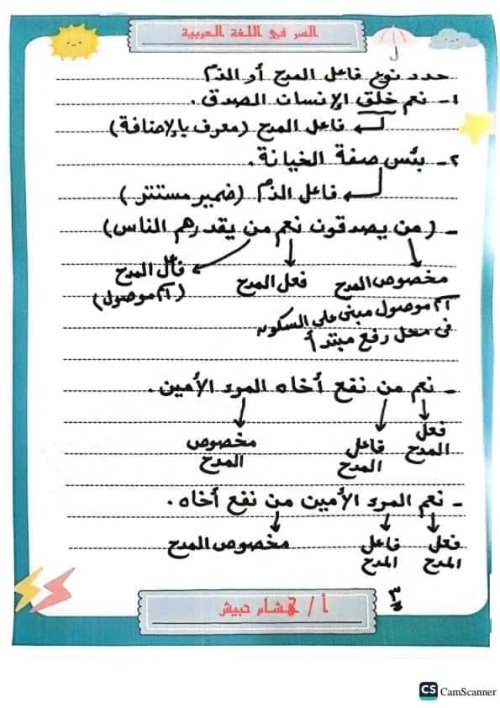 السر في اللغة العربية
حدد نوع فاعل المدح أو الذم
١- نعم خلق الإنسان الصدق.
فاعل المدح (معرف بالإضافة)
٢- بئس صفة الخيانة.
فاعل الذم (ضمير مستتر)
- (من يصدقون نعم من يقدرهم الناس)
مخصوص المدح فعل المدح فاعل المدح
اسم موصول مبنى على السكون (اسم موصول)
فى محل رفع مبتدأ
- نعم من نفع أخاه المرء الأمين.
فعل المدح فاعل المدح مخصوص المدح
- نعم المرء الأمين من نفع أخاه.
فعل المدح فاعل المدح مخصوص المدح
٣
أ / هشام حبيش
CS CamScanner